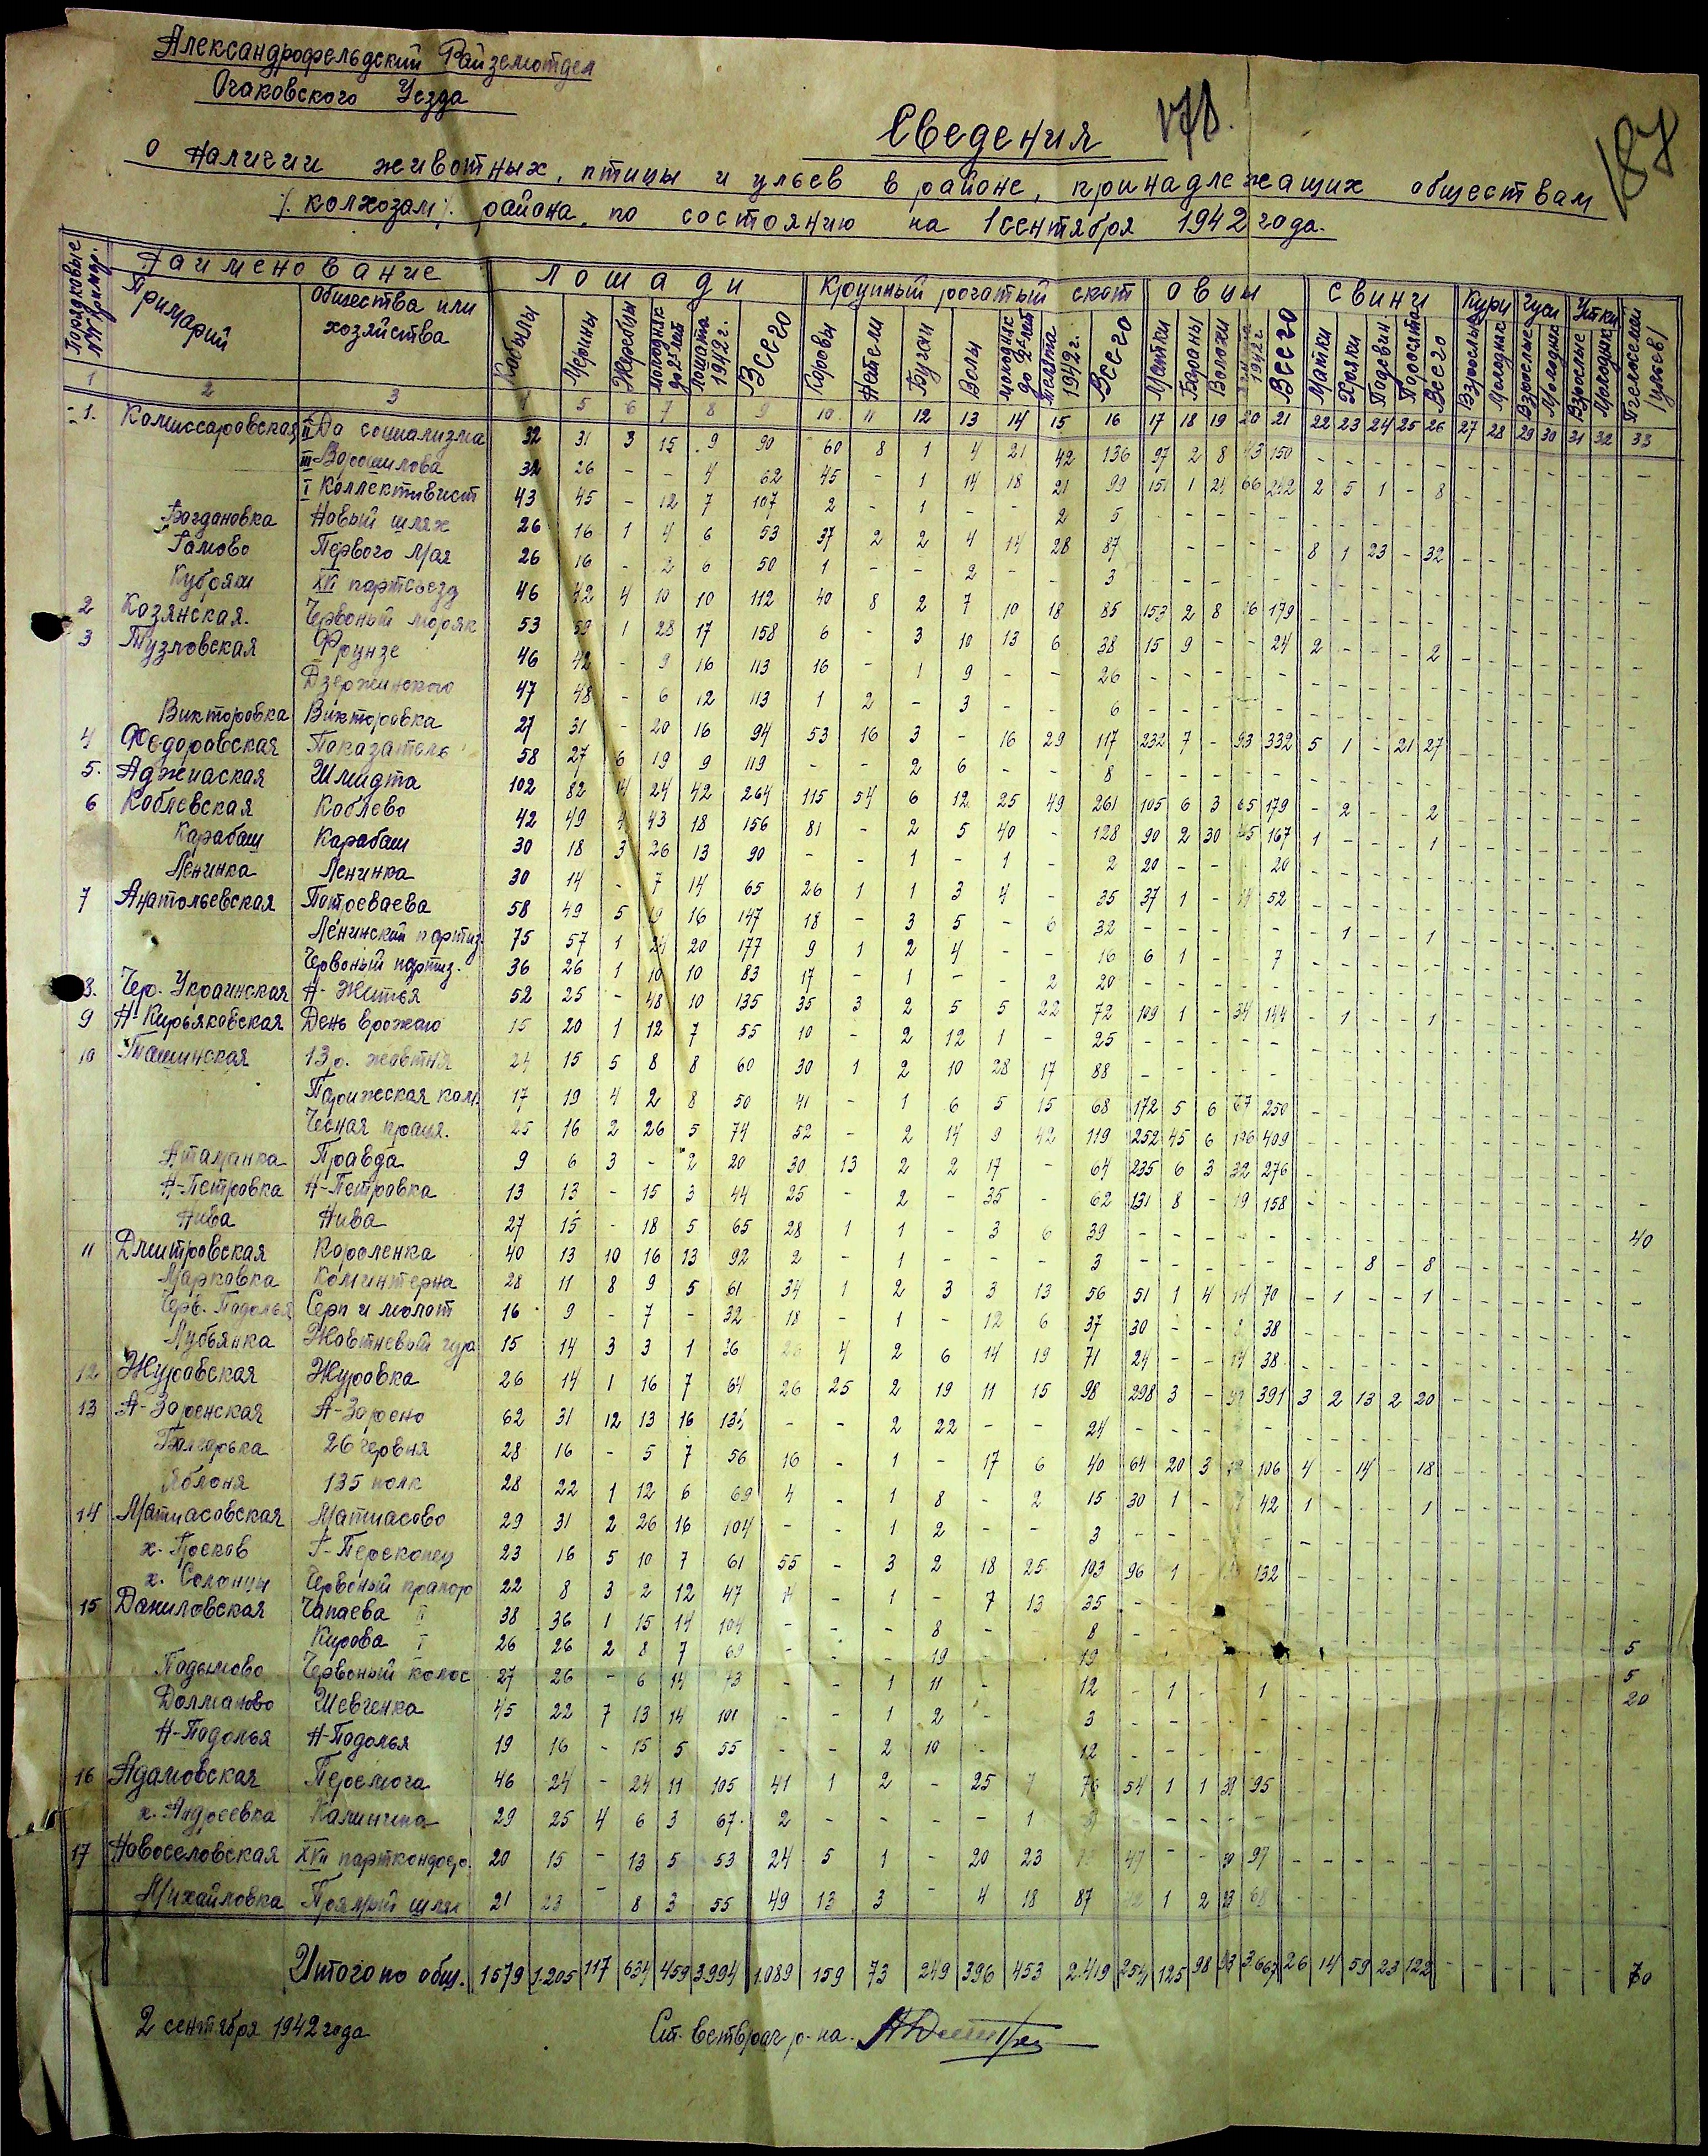 Александрофельдский Райземотдел
Очаковского Уезда
Сведения
178.
187
о наличии животных, птицы и ульев в районе, принадлежащих обществам
/. колхозам /. района, по состоянию на 1 сентября 1942 года.
Порядковые №№ примар. Наименование Лошади Крупный рогатый скот Овцы Свиньи Куры Гуси Утки Пчелосемьи /ульев/
Примарий Общества или хозяйства Кобылы Мерины Жеребцы Молодняк до 2х лет Лошата 1942 г. Всего Коровы Нетели Бугаи Волы Молодняк до 2х лет Телята 1942 г. Всего Матки Бараны Валахи 1942 г. Всего Матки Хряки Подсвин Поросята Всего Взрослые Молодняк Взрослые Молодняк Взрослые Молодняк
1 2 3 5 6 7 8 9 10 11 12 13 14 15 16 17 18 19 20 21 22 23 24 25 26 27 28 29 30 31 32 33
1. Комиссаровская II До социализма 32 31 3 15 9 90 60 8 1 4 21 42 136 97 2 8 43 150
III Ворошилова 32 26 - - 4 62 45 - 1 14 18 21 99 151 1 24 66 242 2 5 1 - 8
I Коллективист 43 45 - 12 7 107 2 - 1 - - 2 5
Богдановка Новый шлях 26 16 1 4 6 53 37 2 2 4 14 28 87 - - - - - 8 1 23 - 32
Гамово Первого Мая 26 16 - 2 6 50 1 - - 2 - - 3
Кубряки XVI партсъезд 46 42 4 10 10 112 40 8 2 7 10 18 85 153 2 8 16 179
2 Козянская. Червоный моряк 53 59 1 28 17 158 6 - 3 10 13 6 38 15 9 - - 24 2 - - - 2
3 Тузловская Фрунзе 46 42 - 9 16 113 16 - 1 9 - - 26
Дзержинского 47 48 - 6 12 113 1 2 - 3 - - 6
Викторовка Викторовка 27 31 - 20 16 94 53 16 3 - 16 29 117 232 7 - 93 332 5 1 - 21 27
4 Федоровская Показатель 58 27 6 19 9 119 - - 2 6 - - 8
5. Аджиаская Шмидта 102 82 14 24 42 264 115 54 6 12 25 49 261 105 6 3 65 179 - 2 - - 2
6 Коблевская Коблево 42 49 4 43 18 156 81 - 2 5 40 - 128 90 2 30 45 167 1 - - - 1
Карабаш Карабаш 30 18 3 26 13 90 - - 1 - 1 - 2 20 - - 20
Ленинка Ленинка 30 14 - 7 14 65 26 1 1 3 4 - 35 37 1 - 14 52
7 Анатольевская Потоеваева 58 49 5 19 16 147 18 - 3 5 - 6 32 - - - - - - 1 - - 1
Ленинский партиз. 75 57 1 24 20 177 9 1 2 4 - - 16 6 1 - - 7
Червоный партиз. 36 26 1 10 10 83 17 - 1 - - 2 20
8. Чер. Украинская Н- Життья 52 25 - 48 10 135 35 3 2 5 5 22 72 109 1 - 34 144 - 1 - - 1
9 Н-Кирьяковская День Врожаю 15 20 1 12 7 55 10 2 12 1 - 25
10 Ташинская 13 р. жовтня 24 15 5 8 8 60 30 1 2 10 28 17 88
Парижская ком. 17 19 4 2 8 50 41 - 1 6 5 15 68 172 5 6 67 250
Чесная праця. 25 16 2 26 5 74 52 - 2 14 9 42 119 252 45 6 106 409
Атаманка Правда 9 6 3 - 2 20 30 13 2 2 17 - 64 235 6 3 32 276
Н-Петровка Н-Петровка 13 13 - 15 3 44 25 - 2 - 35 - 62 131 8 - 19 158
Нива Нива 27 15 - 18 5 65 28 1 1 - 3 6 39 40
11 Дмитровская Короленка 40 13 10 16 13 92 2 - 1 - - - 3 - - - - - - - 8 - 8
Марковка Коминтерна 28 11 8 9 5 61 34 1 2 3 3 13 56 51 1 4 14 70 - 1 - - 1
Черв. Подолья Серп и молот 16 9 - 7 - 32 18 - 1 - 12 6 37 30 - - 8 38
Лубьянка Жовтневый 15 14 3 3 1 36 26 4 2 6 14 19 71 24 - - 14 38
12 Журовская Журовка 26 14 1 16 7 64 26 25 2 19 11 15 98 298 3 - 391 3 2 13 2 20
13 Н-Заренская Н-Зарено 62 31 12 13 16 134 - - 2 22 - - 24
Болгарька 26 червня 28 16 - 5 7 56 16 - 1 - 17 6 40 64 20 3 19 106 4 - 14 - 18
Яблоня 135 полк 28 22 1 12 6 69 4 - 1 8 - 2 15 30 1 - 42 1 - - - 1
14 Матиасовская Матиасово 29 31 2 26 16 104 - - 1 2 - - 3
х. Просков Г-Перекопец 23 16 5 10 7 61 55 - 3 2 18 25 103 96 1 - 132
х. Солонцы Червоный прапор 22 8 3 2 12 47 - 1 - 7 13 35
15 Даниловская Чапаева II 38 36 1 15 14 104 - - - 8 - 8
Кирова I 26 26 2 8 7 69 - - - 19 19 5
Подымово Червоный колос 27 26 - 6 14 73 - - 1 11 - 12 - 1 - 1 5
Долманово Шевченка 45 22 7 13 14 101 - - 1 2 - 3 20
Н-Подолья Н-Подолья 19 16 - 15 5 55 - - 2 10 - 12
16 Адамовская Перемога 46 24 - 24 11 105 41 1 2 - 25 7 76 54 1 1 39 95
х. Андреевка Калинина 29 25 4 6 3 67 2 - - - - 1 3
17 Новоселовская XVII партконфер. 20 15 - 13 5 53 24 5 1 - 20 23 47 - - 50 97
Михайловка Прямый шлях 21 23 - 8 3 55 49 13 3 - 4 18 87 1 2 23 68
Итого по общ. 1579 1.205 117 634 459 3.994 1.089 159 73 249 396 453 2.419 254 125 98 93 3.667 26 14 59 23 122 70
2 сентября 1942 года
Ст. ветврач р-на.